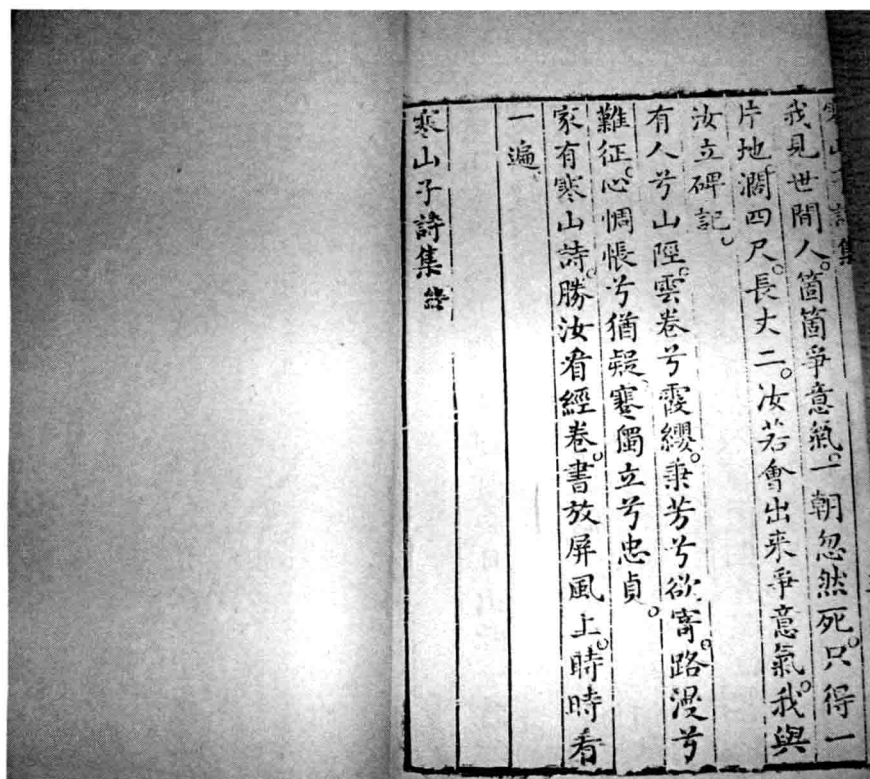 寒山子詩集
我見世間人。箇箇爭意氣。一朝忽然死。只得一
片地。濶四尺。長丈二。汝若會出来爭意氣。我與
汝立碑記。
有人兮山陘。雲卷兮霞纓。秉芳兮欲寄。路漫兮
難征。心惆悵兮猶疑。蹇獨立兮忠貞。
家有寒山詩。勝汝看經卷。書放屏風上。時時看
一遍。
寒山子詩集終